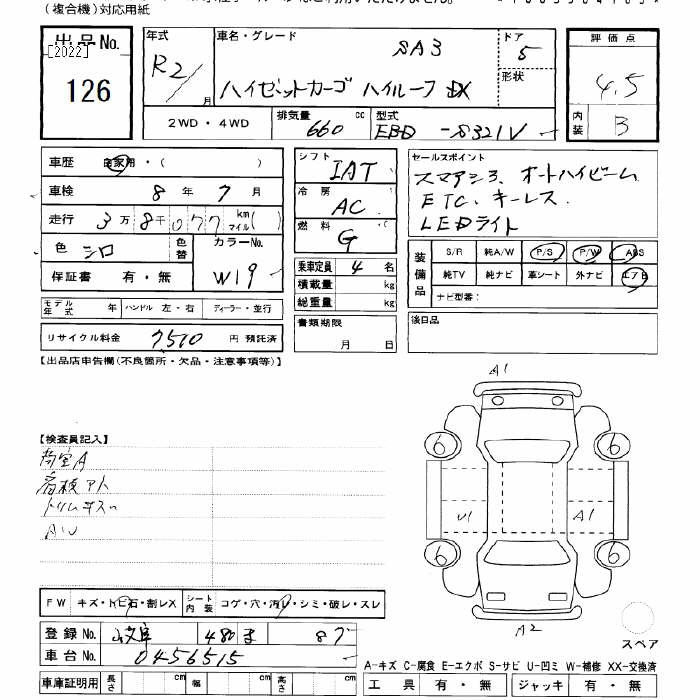 (複合機)対応用紙
出品No.
[2022]
126
年式
R2/
月
車名・グレード
SA3
ハイゼットカーゴ ハイルーフ DX
ドア
5
形状
評価点
4.5
内装
B
2WD・4WD
排気量
660
cc
型式
EBD-S321V
車歴
自家用・( )
車検
8年7月
走行
3万8千077
km
マイル( )
色
シロ
色替
カラーNo.
W19
保証書 有・無
シフト
IAT
冷房
AC
燃料
G
セールスポイント
スマアシ3、オートハイビーム
ETC、キーレス、
LEDライト
装備品
S/R 純A/W P/S P/W ABS
純TV 純ナビ 車シート 外ナビ エアB
ナビ型番:
後日品
乗車定員 4 名
積載量 kg
総重量 kg
書類期限
月 日
モデル年式 年 ハンドル 左・右 ディーラー・並行
リサイクル料金 7510 円 預託済
【出品店申告欄(不良箇所・欠品・注意事項等)】
【検査員記入】
荷室A
看板アト
トリムキズ
AW
A1
6 6
U1 A1
6 6
A2
スペア
FW キズ・トビ石・割レX
シート内装 コゲ・穴・汚レ・シミ・破レ・スレ
登録No. 480
車台No. 0456515
A-キズ C-腐食 E-エクボ S-サビ U-凹ミ W-補修 XX-交換済
車庫証明用 長さ cm 幅 cm 高さ cm
工具 有・無 ジャッキ 有・無